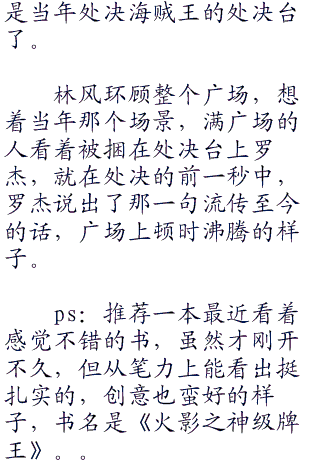 是当年处决海贼王的处决台
了。
林风环顾整个广场，想
着当年那个场景，满广场的
人看着被捆在处决台上罗
杰，就在处决的前一秒中，
罗杰说出了那一句流传至今
的话，广场上顿时沸腾的样
子。
ps：推荐一本最近看着
感觉不错的书，虽然才刚开
不久，但从笔力上能看出挺
扎实的，创意也蛮好的样
子，书名是《火影之神级牌
王》。。